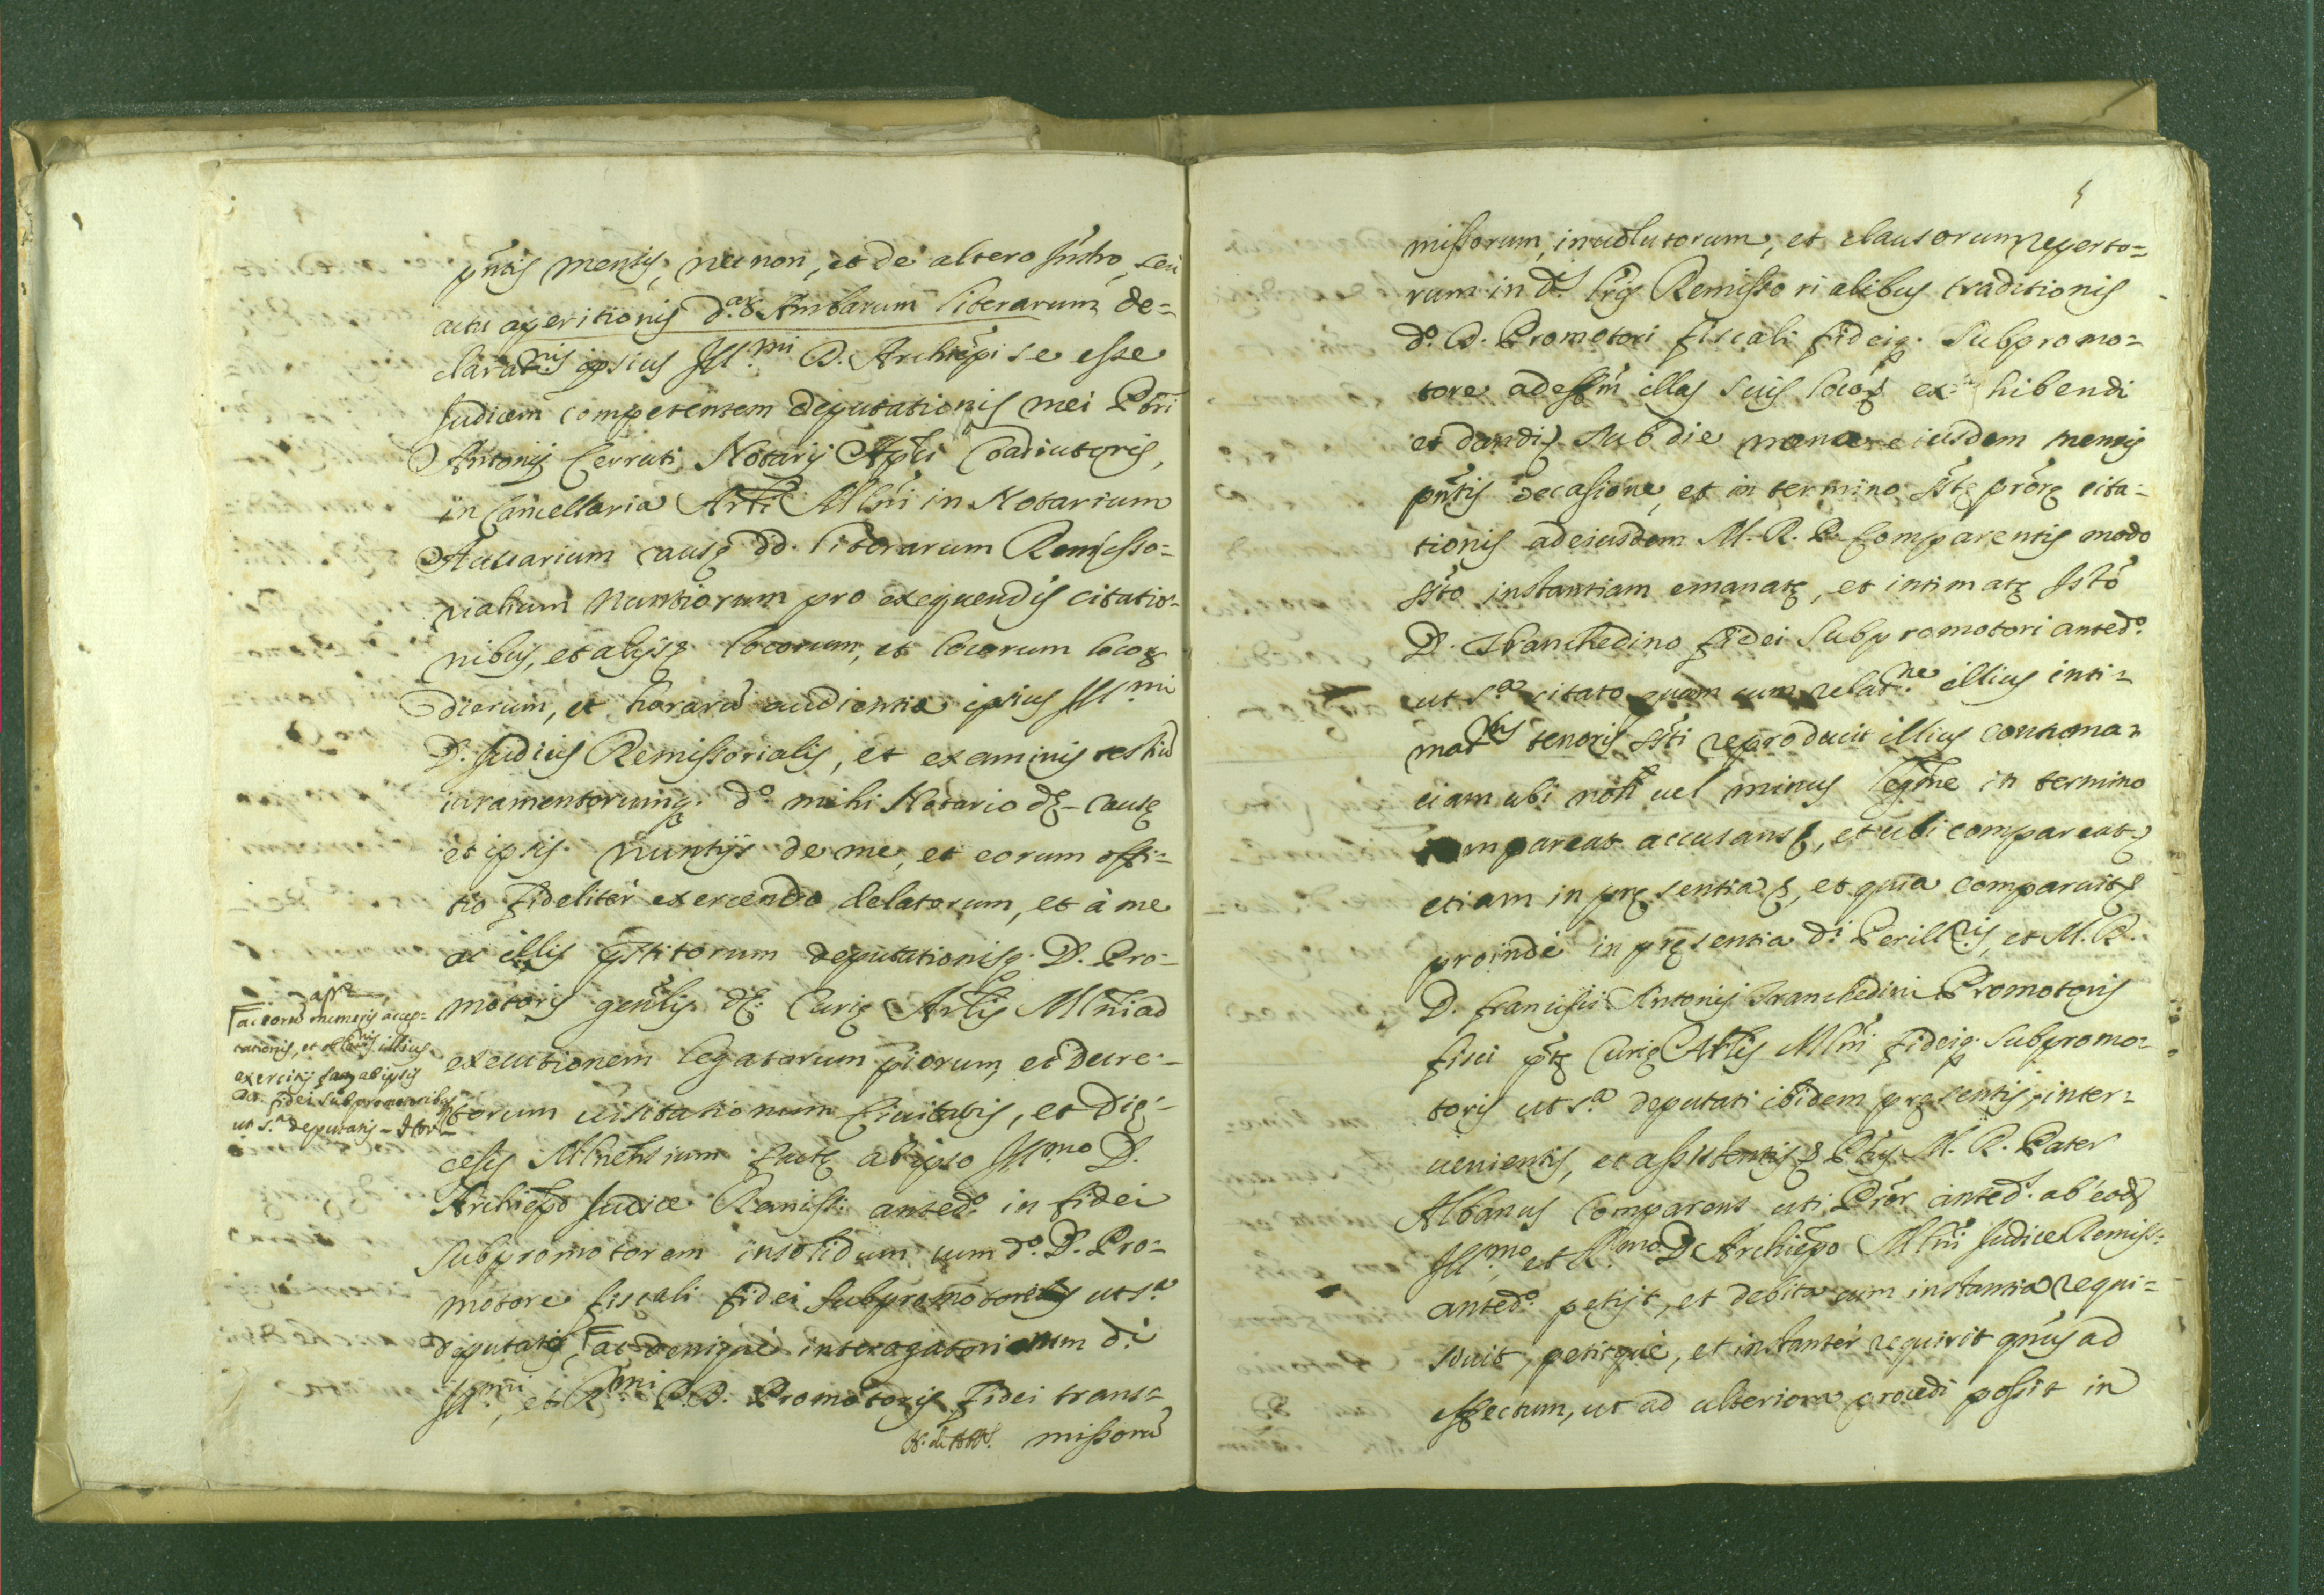 pn̄tis mensis, necnon, et de altero Instro, seu
actu aperitionis d.ar Ambarum literarum de=
clarat.nis ipsius Ill.mi D. Archiepi se esse
Judicem competentem deputationis mei Pbri
Antonij Cerruti Notarij Apli Coadiutoris,
in Cancellaria Archi. Mlni in Notarium
Actuarium causę dd. literarum Remisso=
rialium Nuntiorum pro exequendis citatio=
nibus, et alijsq. locorum, et locorum loco
dierum, et horarū audientię ipsius Ill.mi
D. Judicis Remissorialis, et examinis testiū
iuramentorumq. d.o mihi Notario dę causę
et ipsis Nuntijs de me, et eorum offi=
tio fideliter exercendo delatorum, et à me
ac illis pstitorum deputationisq. D. Pro=
motoris gen̄lis dę Curię Archlis Mlni ad
executionem legatorum piorum, et Decre=
torum uisitationum Ciuitatis, et Dię=
cesis Mlnensium factę ab ipso Ill.mo D.
Archiepo Judice Remiss. anted.o in fidei
subpromotorem insolidum cum d.o D. Pro=
motore fiscali fidei Subpromotoribus ut s.a
deputatis, ac denique interogatoriorum di
Ill.mi, et R.mi P.D. Promotoris fidei trans=
missorū
ac eorū muneris accep=
tationis, et illius
exercitij ab ipsis
DD. fidei subpromotoribus
ut s.a deputatis
5
missorum, inuolutorum, et clausorum reperto=
rum in d. lris Remissorialibus traditionis
d.o D. Promotori fiscali fideiq. Subpromo=
tore ad effm illas suis locoq ex hibendi
et dandi sub die eiusdem mensis
pn̄tis occasione, et in termino prorę cita=
tionis ad eiusdem M. R. P. Comparentis modo
ss̄to instantiam emanatę, et intimatę
D. Tranchedino fidei Subpromotori anted.o
ut s.a citato quam cum relat.ne illius inti=
mat.nis tenoris ss̄ti reproducit illius contuma=
ciam ubi non uel minus legme in termino
compareat accusans, et ubi compareat
etiam in pręsentia, et quia comparuit
proinde in pręsentia di Perill.ris, et M. R.
D. Francisci Antonij Tranchedini Promotoris
fisci ptę Curię Archlis Mlni fideiq. Subpromo=
toris ut s.a deputati ibidem pręsentis, inter=
uenientis, et assistentis Ptus M. R. Pater
Albanus Comparens uti Pror anted. ab eod
Ill.mo, et R.mo D. Archiepo Mlni Judice Remiss.
anted.o petijt, et debita cum instantia requi=
siuit, petitque, et instanter requirit quus ad
effectum, ut ad ulteriora procedi possit in